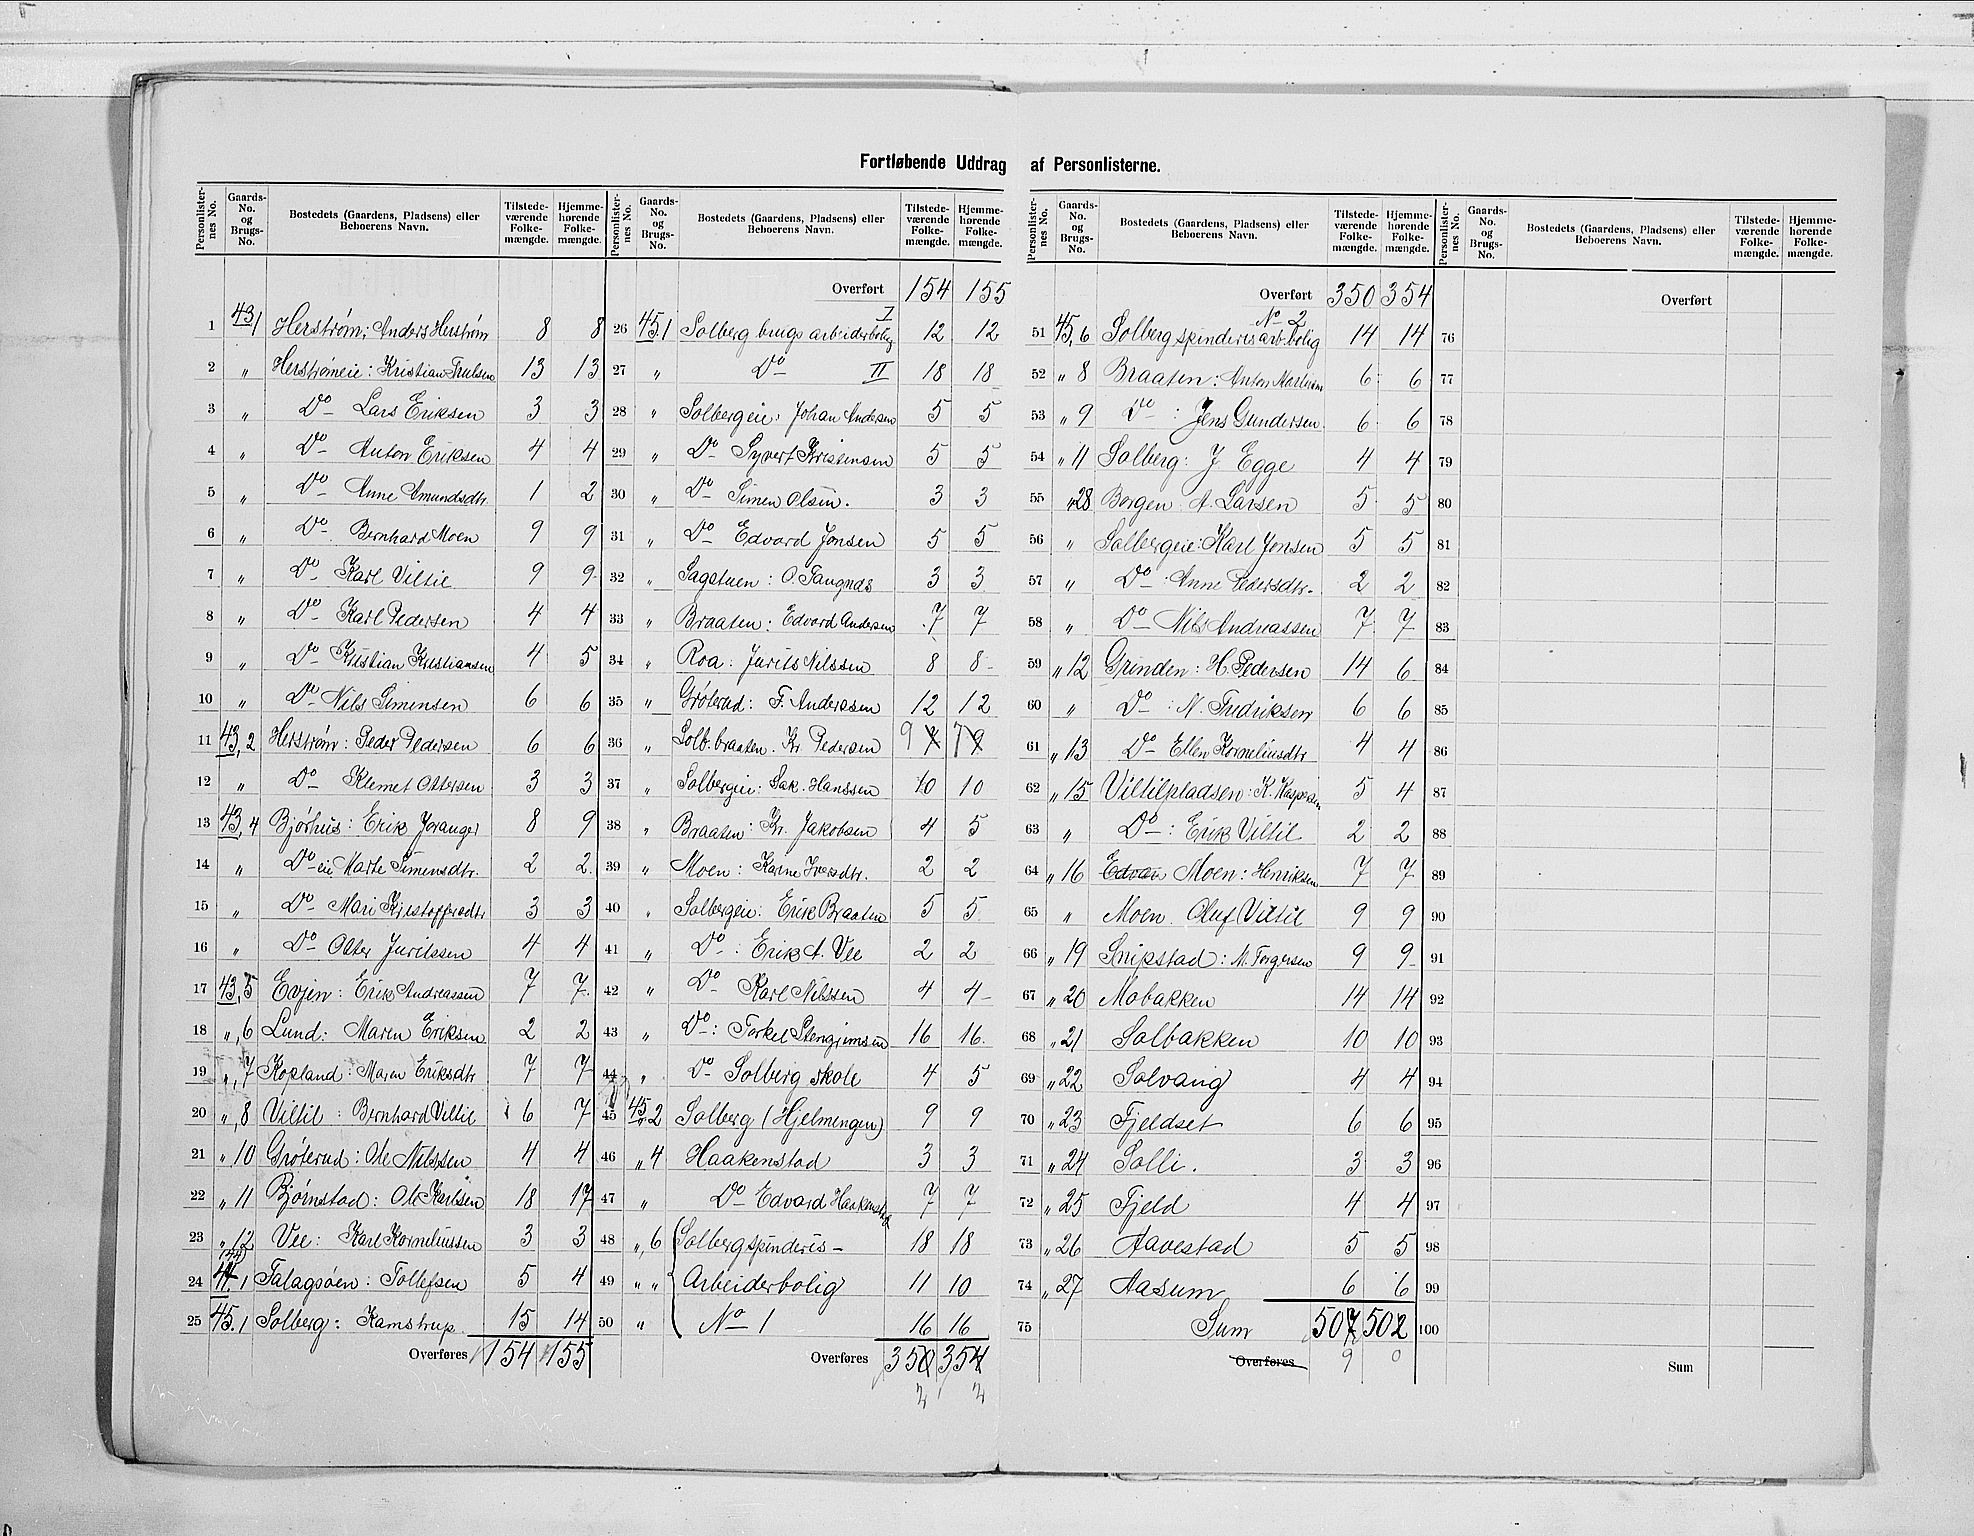 Fortløbende Uddrag af Personlisterne.
Personlister-nes No. Gaards-No. og Brugs-No. Bostedets (Gaardens, Pladsens) eller Beboerens Navn. Tilstede-værende Folke-mængde. Hjemme-hørende Folke-mængde.
1 43,1 Herstrøm; Anders Herstrøm 8 8
2 " Herstrømeie: Kristian Trulsen 13 13
3 " Do Lars Eriksen 3 3
4 " Do Anton Eriksen 4 4
5 " Do Anne Amundsdtr. 1 2
6 " Do Bernhard Moen 9 9
7 " Do Karl Viltil 9 9
8 " Do Karl Pedersen 4 4
9 " Do Kristian Kristiansen 4 5
10 " Do Nils Simensen 6 6
11 43,2 Herstrøm: Peder Pedersen 6 6
12 " Do Klemet Ottersen 3 3
13 43,4 Bjørhus: Erik Joranger 8 9
14 " Do eie Marte Simensdtr. 2 2
15 " Do Mari Kristoffersdtr 3 3
16 " Do Otter Juritssen 4 4
17 43,5 Evjen: Erik Andreassen 7 7
18 ",6 Lund: Maren Eriksen 2 2
19 ",7 Kopland: Maren Eriksdtr 7 7
20 ",8 Viltil: Bernhard Viltil 6 7
21 " 10 Grøterud: Ole Nilssen 4 4
22 " 11 Bjørnstad: Ole Karlsen 18 17
23 " 12 Vee: Karl Korneliussen 3 3
24 44.1 Talagsøen: Tollefsen 5 4
25 45.1 Solberg: Kamstrup 15 14
Overføres 154 155
Personlister-nes No. Gaards-No. og Brugs-No. Bostedets (Gaardens, Pladsens) eller Beboerens Navn. Tilstede-værende Folke-mængde. Hjemme-hørende Folke-mængde.
Overført 154 155
26 45,1 Solberg brugs arbeiderbolig I 12 12
27 " Do II 18 18
28 " Solbergeie: Johan Andersen 5 5
29 " Do Syvert Kristensen 5 5
30 " Do Simen Olsen. 3 3
31 " Do Edvard Jonsen 5 5
32 " Sagstuen: O. Taugnæs 3 3
33 " Braaten: Edvard Andersen 7 7
34 " Roa: Jurits Nilssen 8 8
35 " Grøterud: F. Anderssen 12 12
36 " Solb.braaten. Kr. Pedersen 9 7 7 9
37 " Solbergeie: Sak. Hanssen 10 10
38 " Braaten: Kr. Jakobsen 4 5
39 " Moen: Karine Iversdtr. 2 2
40 " Solbergeie: Erik Braaten 5 5
41 " Do: Erik A. Vee 2 2
42 " Do Karl Nilssen 4 4
43 " Do: Torkel Stengrimsen 16 16
44 " Do Solberg skole 4 5
45 45,2 Solberg (Hjelmengen) 9 9
46 " 4 Haakenstad 3 3
47 " Do Edvard Haakenstad 7 7
48 ",6 Solbergspinderis- 18 18
49 " " Arbeiderbolig 11 10
50 " No 1 16 16
Overføres 350 354
2 2
Personlister-nes No. Gaards-No. og Brugs-No. Bostedets (Gaardens, Pladsens) eller Beboerens Navn. Tilstede-værende Folke-mængde. Hjemme-hørende Folke-mængde.
Overført 350 354
51 45,6 Solbergspinderis arb.bolig No 2 14 14
52 " 8 Braaten: Anton 6 6
53 " 9 Do: Jens Gundersen 6 6
54 " 11 Solberg: J Egge 4 4
55 " 28 Borgen A. Larsen 5 5
56 " Solbergeie: Karl Jonsen 5 5
57 " Do: Anne Pedersdtr. 2 2
58 " Do Nils Andreassen 7 7
59 " 12 Grinden: H. Pedersen 14 6
60 " Do: N. Fredriksen 6 6
61 " 13 Do Ellen Korneliusdtr 4 4
62 " 15 Viltilpladsen: K. Kaspersen 5 4
63 " Do: Erik Viltil 2 2
64 " 16 Edvar Moen: Henriksen 7 7
65 " Moen. Oluf Viltil 9 9
66 " 19 Snipstad: M. Torgersen 9 9
67 " 20 Mobakken 14 14
68 " 21 Solbakken 10 10
69 " 22 Solvang 4 4
70 " 23 Fjeldset 6 6
71 " 24 Solli. 3 3
72 " 25 Fjeld 4 4
73 " 26 Aavestad 5 5
74 " 27 Aasum 6 6
75 Sum 507 502
Overføres 9 0
Personlister-nes No. Gaards-No. og Brugs-No. Bostedets (Gaardens, Pladsens) eller Beboerens Navn. Tilstede-værende Folke-mængde. Hjemme-hørende Folke-mængde.
Overført
76
77
78
79
80
81
82
83
84
85
86
87
88
89
90
91
92
93
94
95
96
97
98
99
100
Sum